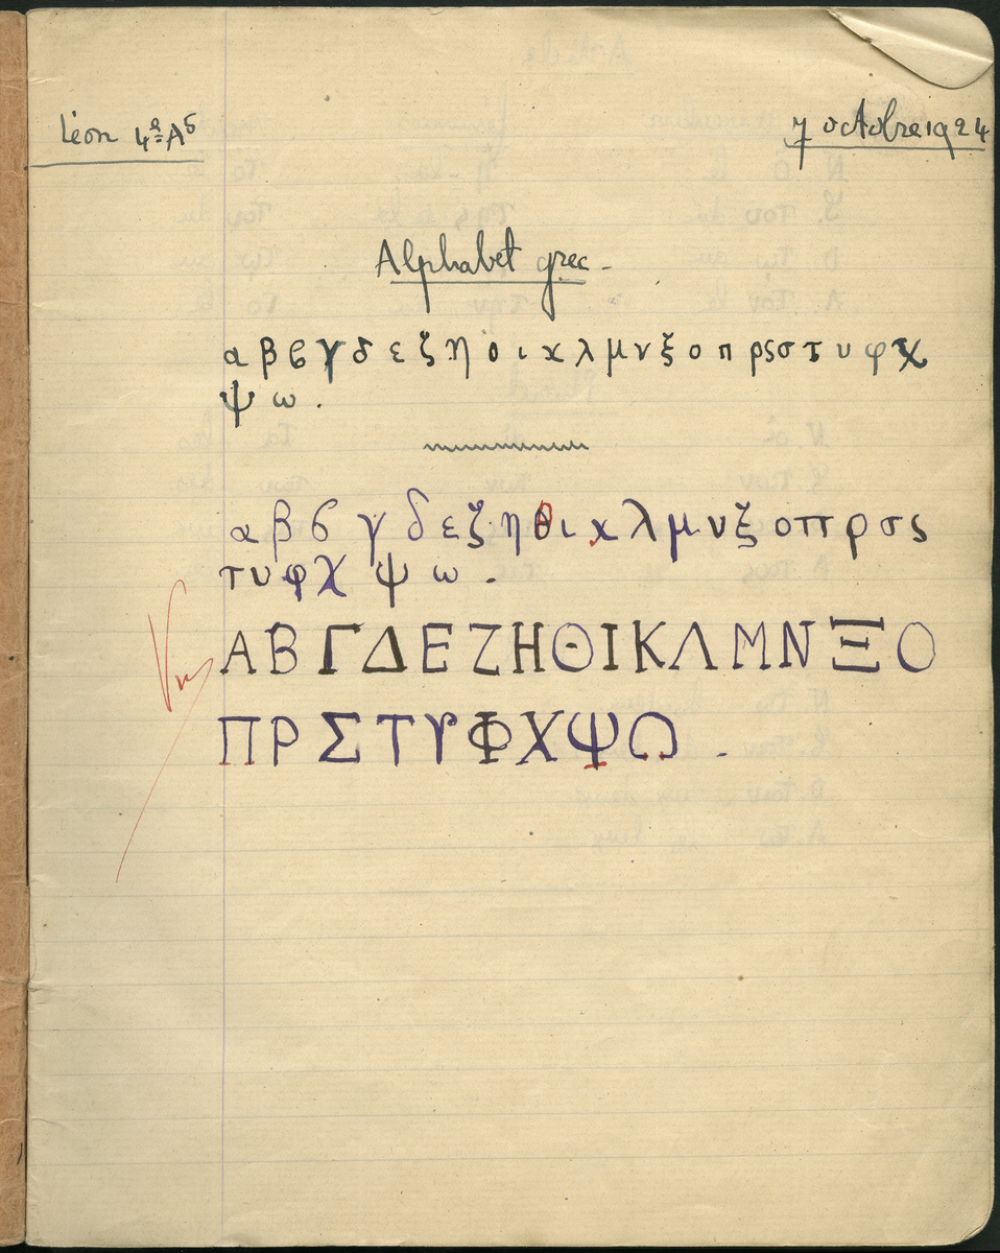 Léon 4e A5
7 octobre 1924
Alphabet grec -
α β ϐ γ δ ε ζ η θ ι κ λ μ ν ξ ο π ρ ς σ τ υ φ χ
ψ ω .
α β ϐ γ δ ε ζ η θ ι κ λ μ ν ξ ο π ρ σ ς
τ υ φ χ ψ ω .
Α Β Γ Δ Ε Ζ Η Θ Ι Κ Λ Μ Ν Ξ Ο
Π Ρ Σ Τ Υ Φ Χ Ψ Ω .